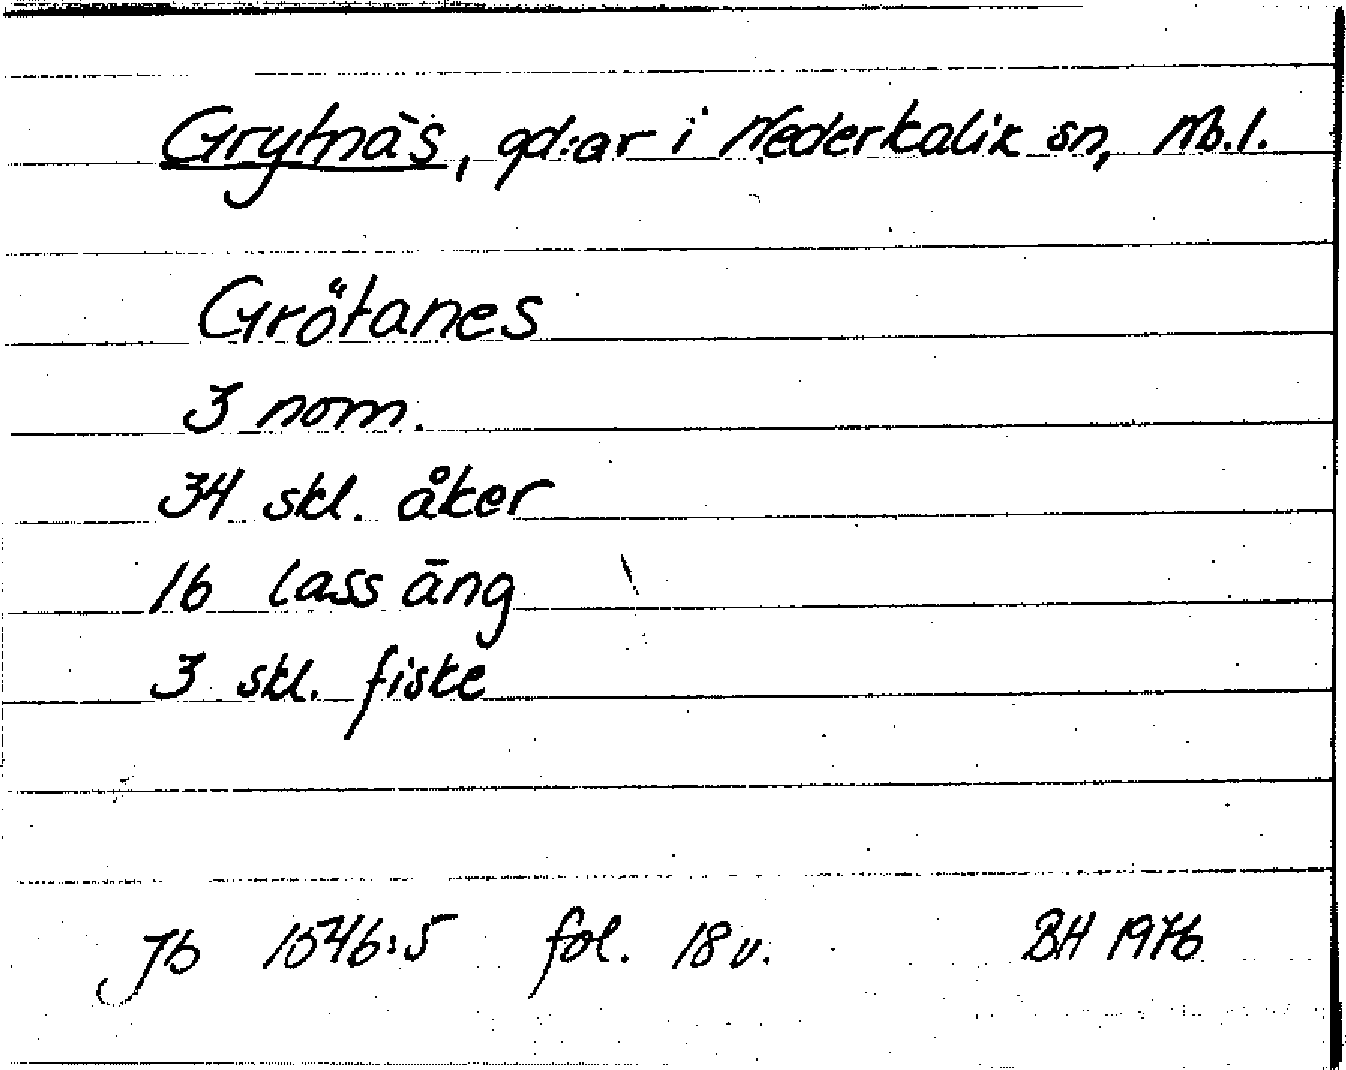 Grytnäs, gd:ar i Nederkalix sn, Nb.l.
Grötanes
3 nom.
34 skl. åker
16 lass äng
3 skl. fiske
Jb 1546:5 fol. 18 v. BH 1976